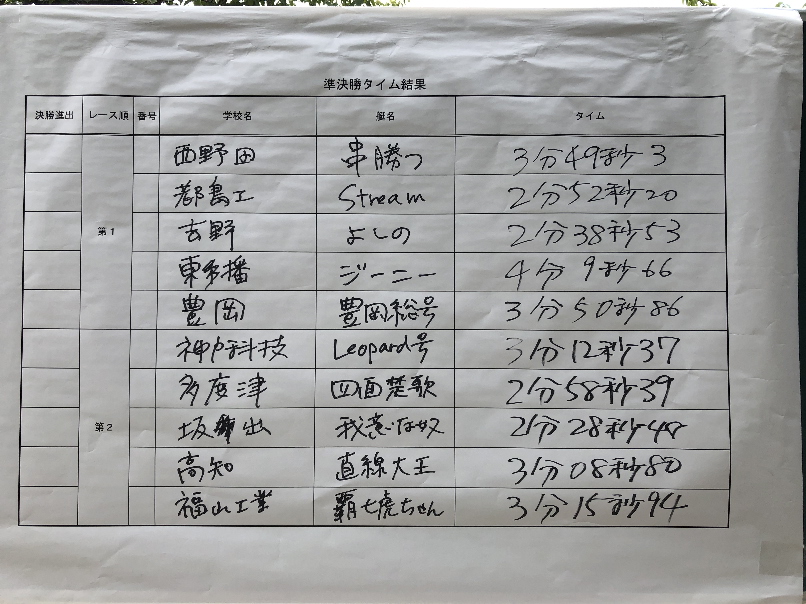 準決勝タイム結果
決勝進出 レース順 番号 学校名 艇名 タイム
西野田 串勝つ 3分49秒3
都島工 Stream 2分52秒20
第1 吉野 よしの 2分38秒53
東多播 ジーニー 4分9秒66
豊岡 豊岡総号 3分50秒86
神戸科技 Leopard号 3分12秒37
多度津 四面楚歌 2分58秒39
第2 坂出 2分28秒48
高知 直線大王 3分08秒80
福山工業 覇七虎ちゃん 3分15秒94